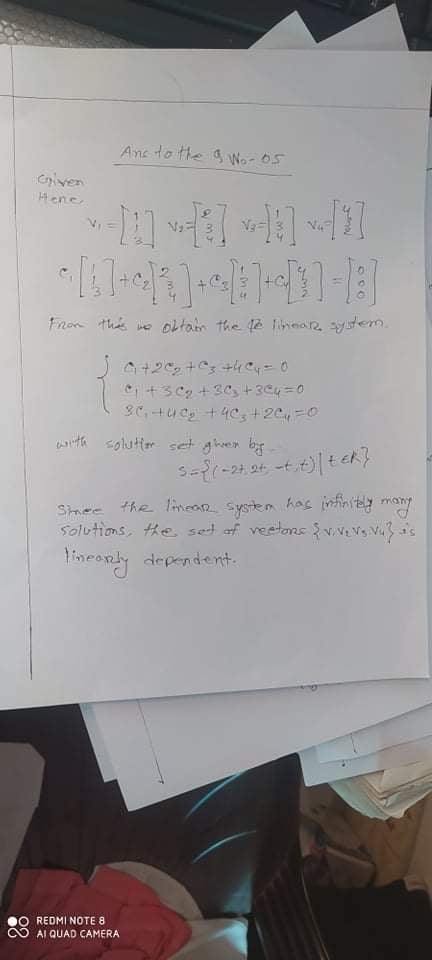 Ans to the Q No-05
Given
Here,
V₁ = [1 1 3] V₂ = [2 3 4] V₃ = [1 3 4] V₄ = [4 3 2]
C₁[1 1 3] + C₂[2 3 4] + C₃[1 3 4] + C₄[4 3 2] = [0 0 0]
From this we obtain the linear system.
C₁ + 2C₂ + C₃ + 4C₄ = 0
C₁ + 3C₂ + 3C₃ + 3C₄ = 0
3C₁ + 4C₂ + 4C₃ + 2C₄ = 0
with solution set given by
S = {(-2t, 2t, -t, t) | t ∈ R}
Since the linear system has infinitely many
solutions, the set of vectors {V₁ V₂ V₃ V₄} is
linearly dependent.
REDMI NOTE 8
AI QUAD CAMERA